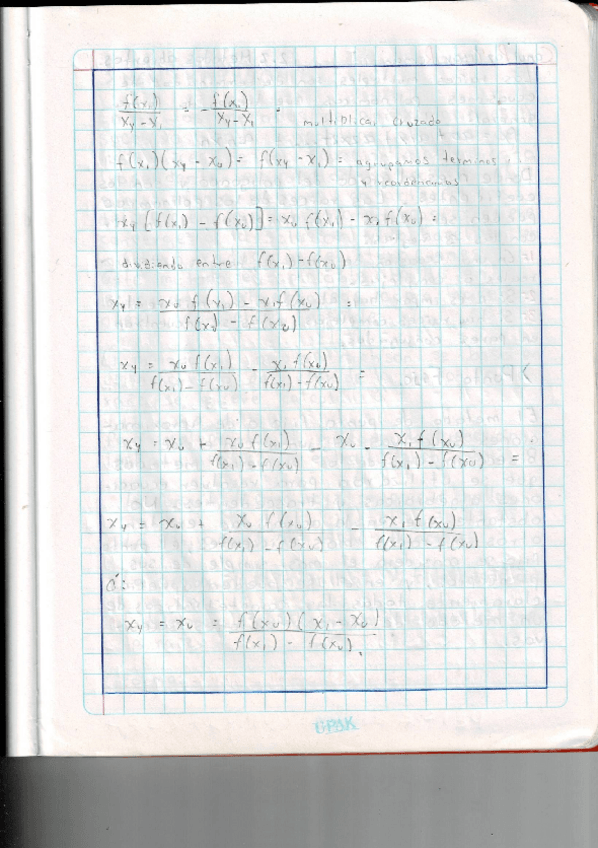 f(x₁)/(xy - x₁) = - f(x₁)/(xy - x₁) =
multiplica cruzado
f(x₁)(xy - xᵤ) = f(xy - x₁) = agrupamos terminos
y reordenamos
xy [f(x₁) - f(xᵤ)] = xᵤ f(x₁) - x₁ f(xᵤ) =
dividiendo entre f(x₁) - f(xᵤ)
xy = (xᵤ f(x₁) - x₁ f(xᵤ))/(f(x₁) - f(xᵤ)) =
xy = xᵤ f(x₁)/(f(x₁) - f(xᵤ)) - x₁ f(xᵤ)/(f(x₁) - f(xᵤ)) =
xy = xᵤ + xᵤ f(x₁)/(f(x₁) - f(xᵤ)) - xᵤ - x₁ f(xᵤ)/(f(x₁) - f(xᵤ)) =
xy = xᵤ + xᵤ f(xᵤ)/(f(x₁) - f(xᵤ)) - x₁ f(xᵤ)/(f(x₁) - f(xᵤ))
ó:
xy = xᵤ = f(xᵤ)(x₁ - xᵤ)/(f(x₁) - f(xᵤ)).